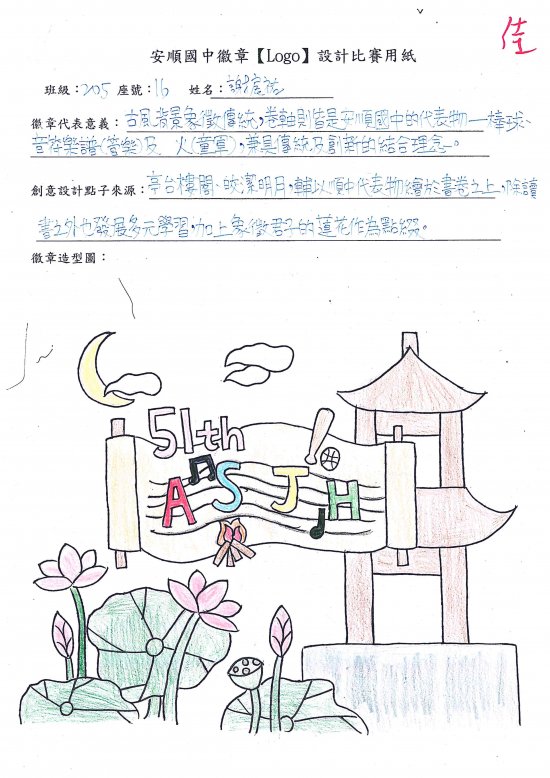 佳
安順國中徽章【Logo】設計比賽用紙
班級：205 座號：16 姓名：謝
徽章代表意義：古風背景象徵傳統，卷軸則皆是安順國中的代表物—棒球、
音符樂譜(管樂)及 火(童軍)，兼具傳統及創新的結合理念。
創意設計點子來源：亭台樓閣、皎潔明月，輔以順中代表物繪於書卷之上，除讀
書之外也發展多元學習，加上象徵君子的蓮花作為點綴。
徽章造型圖：
51th
ASJH